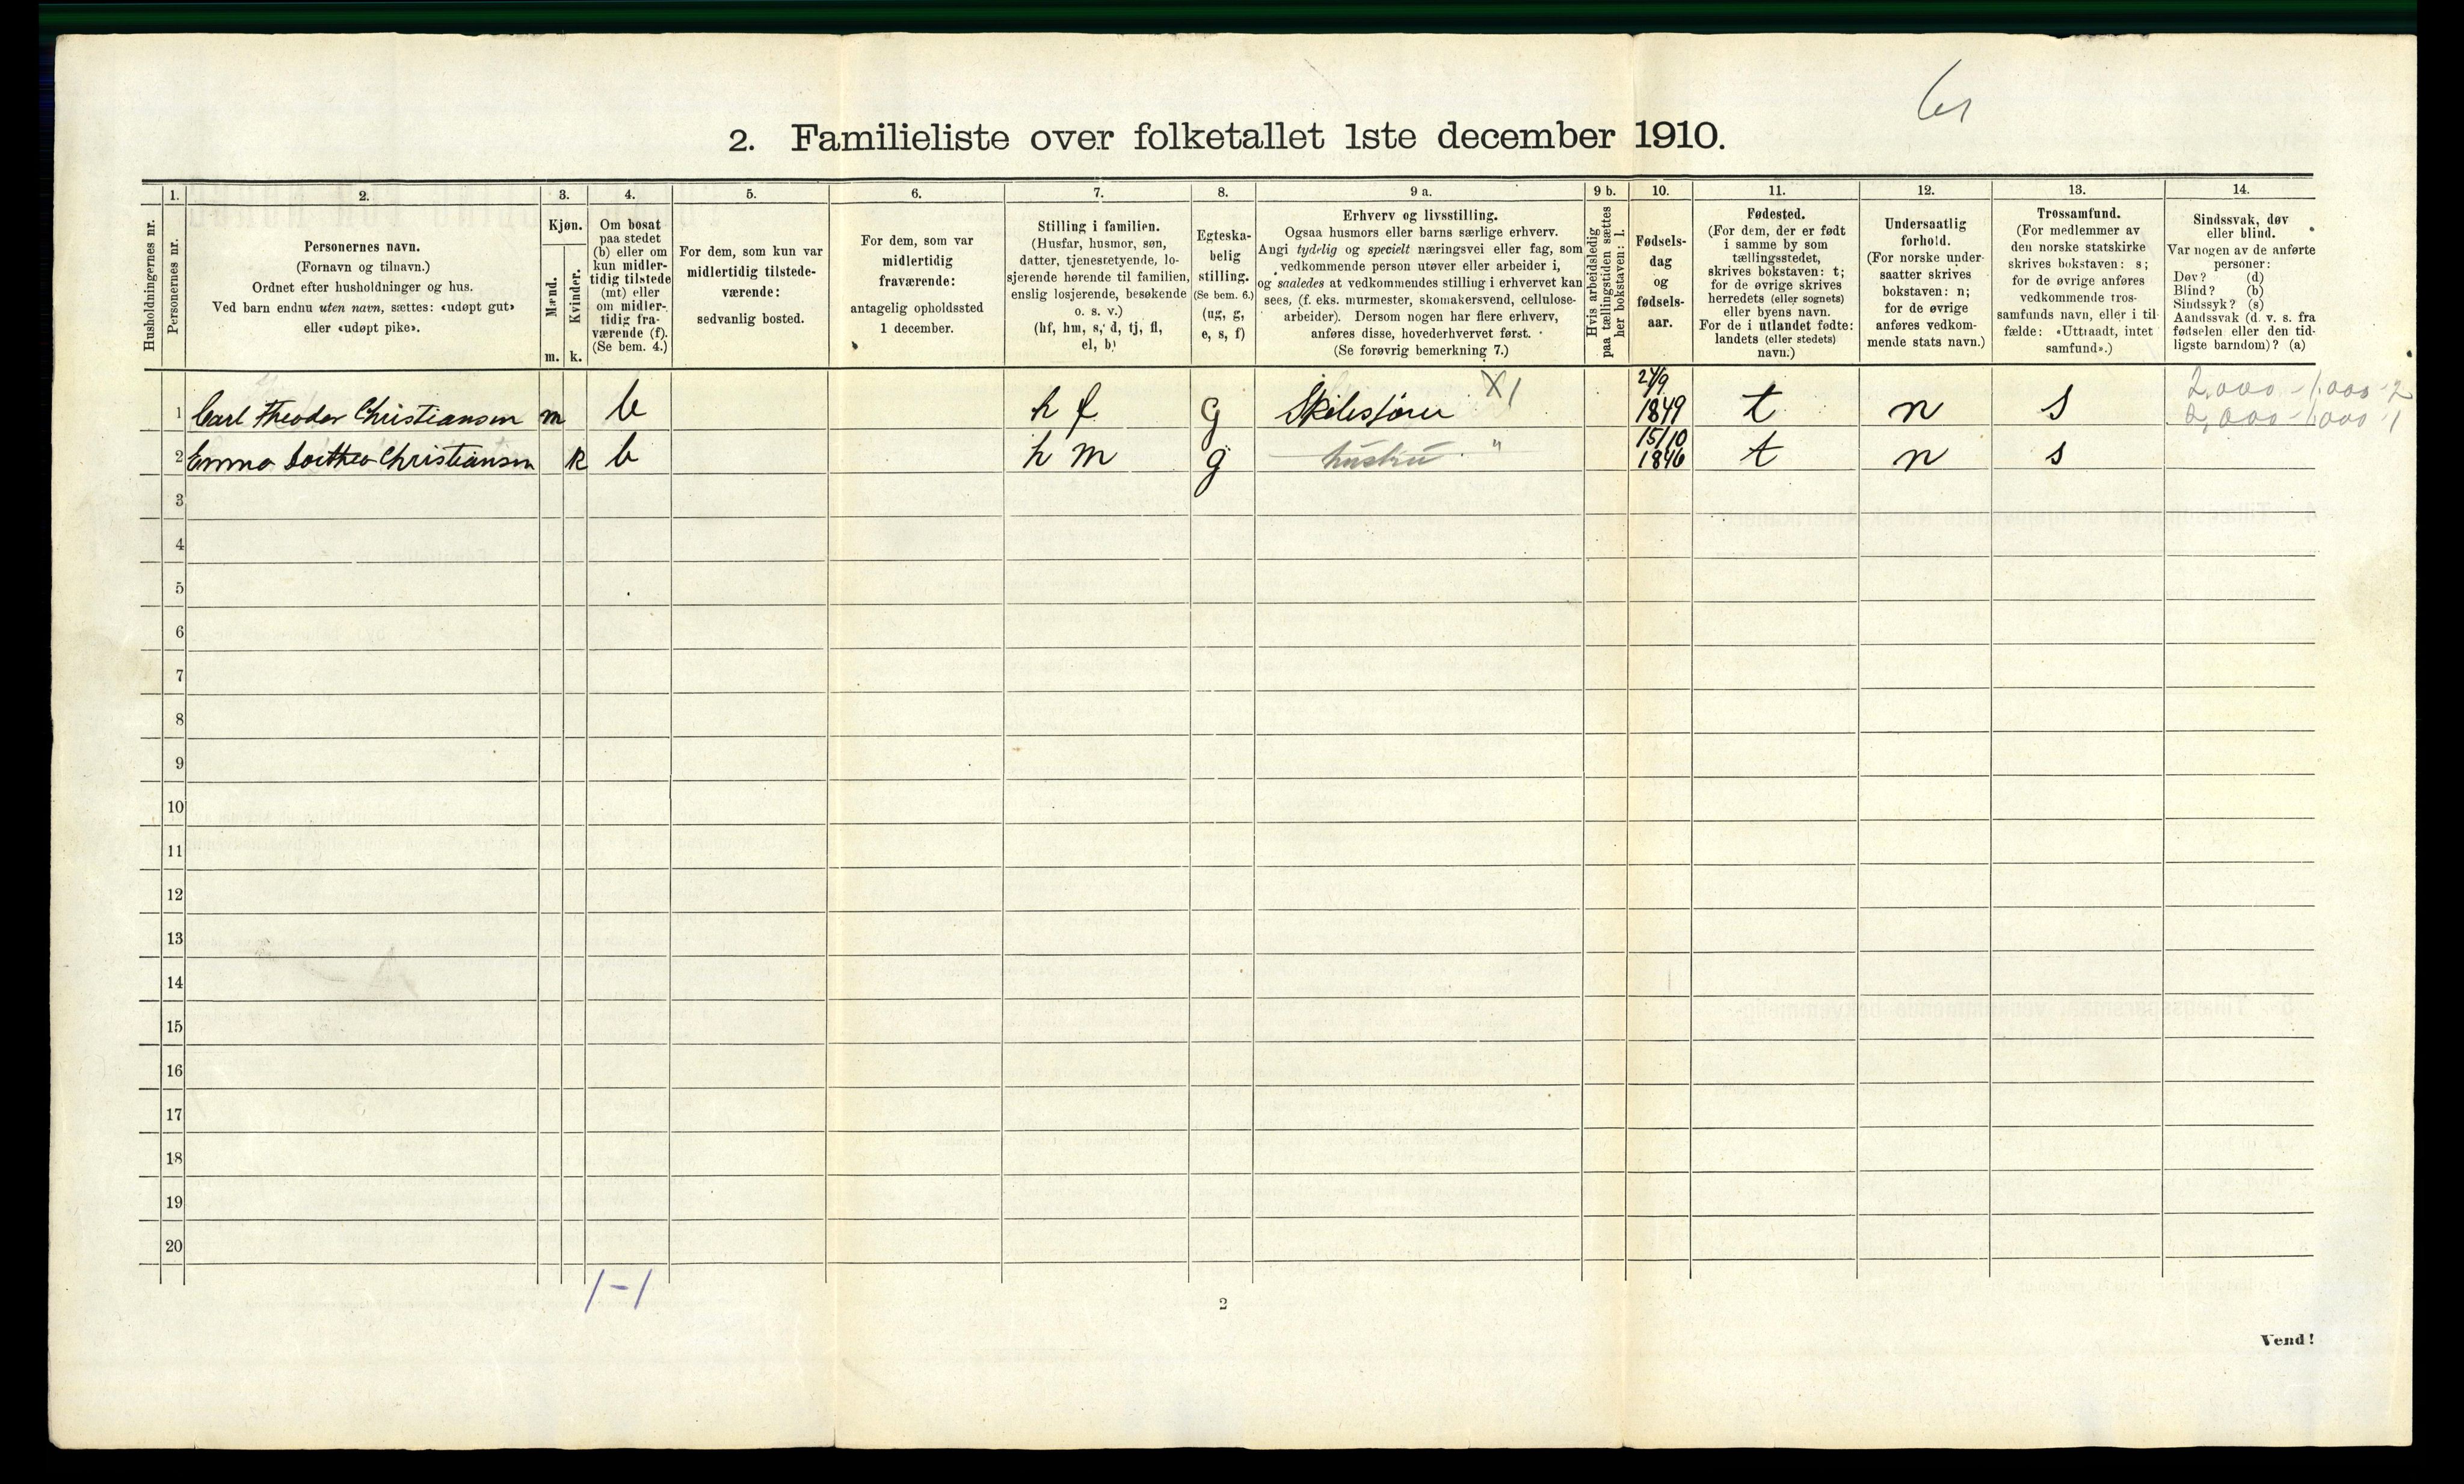 2. Familieliste over folketallet 1ste december 1910.
1. 2. 3. 4. 5. 6. 7. 8. 9 a. 9 b. 10. 11. 12. 13. 14.
Husholdningernes nr.
Personernes nr.
Personernes navn.
(Fornavn og tilnavn.)
Ordnet efter husholdninger og hus.
Ved barn endnu uten navn, sættes: «udøpt gut»
eller «udøpt pike».
Kjøn.
Mænd.
Kvinder.
m. k.
Om bosat
paa stedet
(b) eller om
kun midler-
tidig tilstede
(mt) eller
om midler-
tidig fra-
værende (f).
(Se bem. 4.)
For dem, som kun var
midlertidig tilstede-
værende:
sedvanlig bosted.
For dem, som var
midlertidig
fraværende:
antagelig opholdssted
1 december.
Stilling i familien.
(Husfar, husmor, søn,
datter, tjenestetyende, lo-
sjerende hørende til familien,
enslig losjerende, besøkende
o. s. v.)
(hf, hm, s, d, tj, fl,
el, b)
Egteska-
belig
stilling.
(Se bem. 6.)
(ug, g,
e, s, f)
Erhverv og livsstilling.
Ogsaa husmors eller barns særlige erhverv.
Angi tydelig og specielt næringsvei eller fag, som
vedkommende person utøver eller arbeider i,
og saaledes at vedkommendes stilling i erhvervet kan
sees, (f. eks. murmester, skomakersvend, cellulose-
arbeider). Dersom nogen har flere erhverv,
anføres disse, hovederhvervet først.
(Se forøvrig bemerkning 7.)
Hvis arbeidsledig
paa tællingstiden sættes
her bokstaven: l.
Fødsels-
dag
og
fødsels-
aar.
Fødested.
(For dem, der er født
i samme by som
tællingsstedet,
skrives bokstaven: t;
for de øvrige skrives
herredets (eller sognets)
eller byens navn.
For de i utlandet fødte:
landets (eller stedets)
navn.)
Undersaatlig
forhold.
(For norske under-
saatter skrives
bokstaven: n;
for de øvrige
anføres vedkom-
mende stats navn.)
Trossamfund.
(For medlemmer av
den norske statskirke
skrives bokstaven: s;
for de øvrige anføres
vedkommende tros-
samfunds navn, eller i til-
fælde: «Uttraadt, intet
samfund».)
Sindssvak, døv
eller blind.
Var nogen av de anførte
personer:
Døv? (d)
Blind? (b)
Sindssyk? (s)
Aandssvak (d. v. s. fra
fødselen eller den tid-
ligste barndom)? (a)
2.000 - 1.000 - 2
1 Carl Theodor Christiansen m b h f g X1 24/9 1849 t n s 2,000 - 1.000 - 1
2 Emma Dorthea Christiansen k b h m g hustru " 15/10 1846 t n s
3
4
5
6
7
8
9
10
11
12
13
14
15
16
17
18
19
20
1-1
2
Vend!